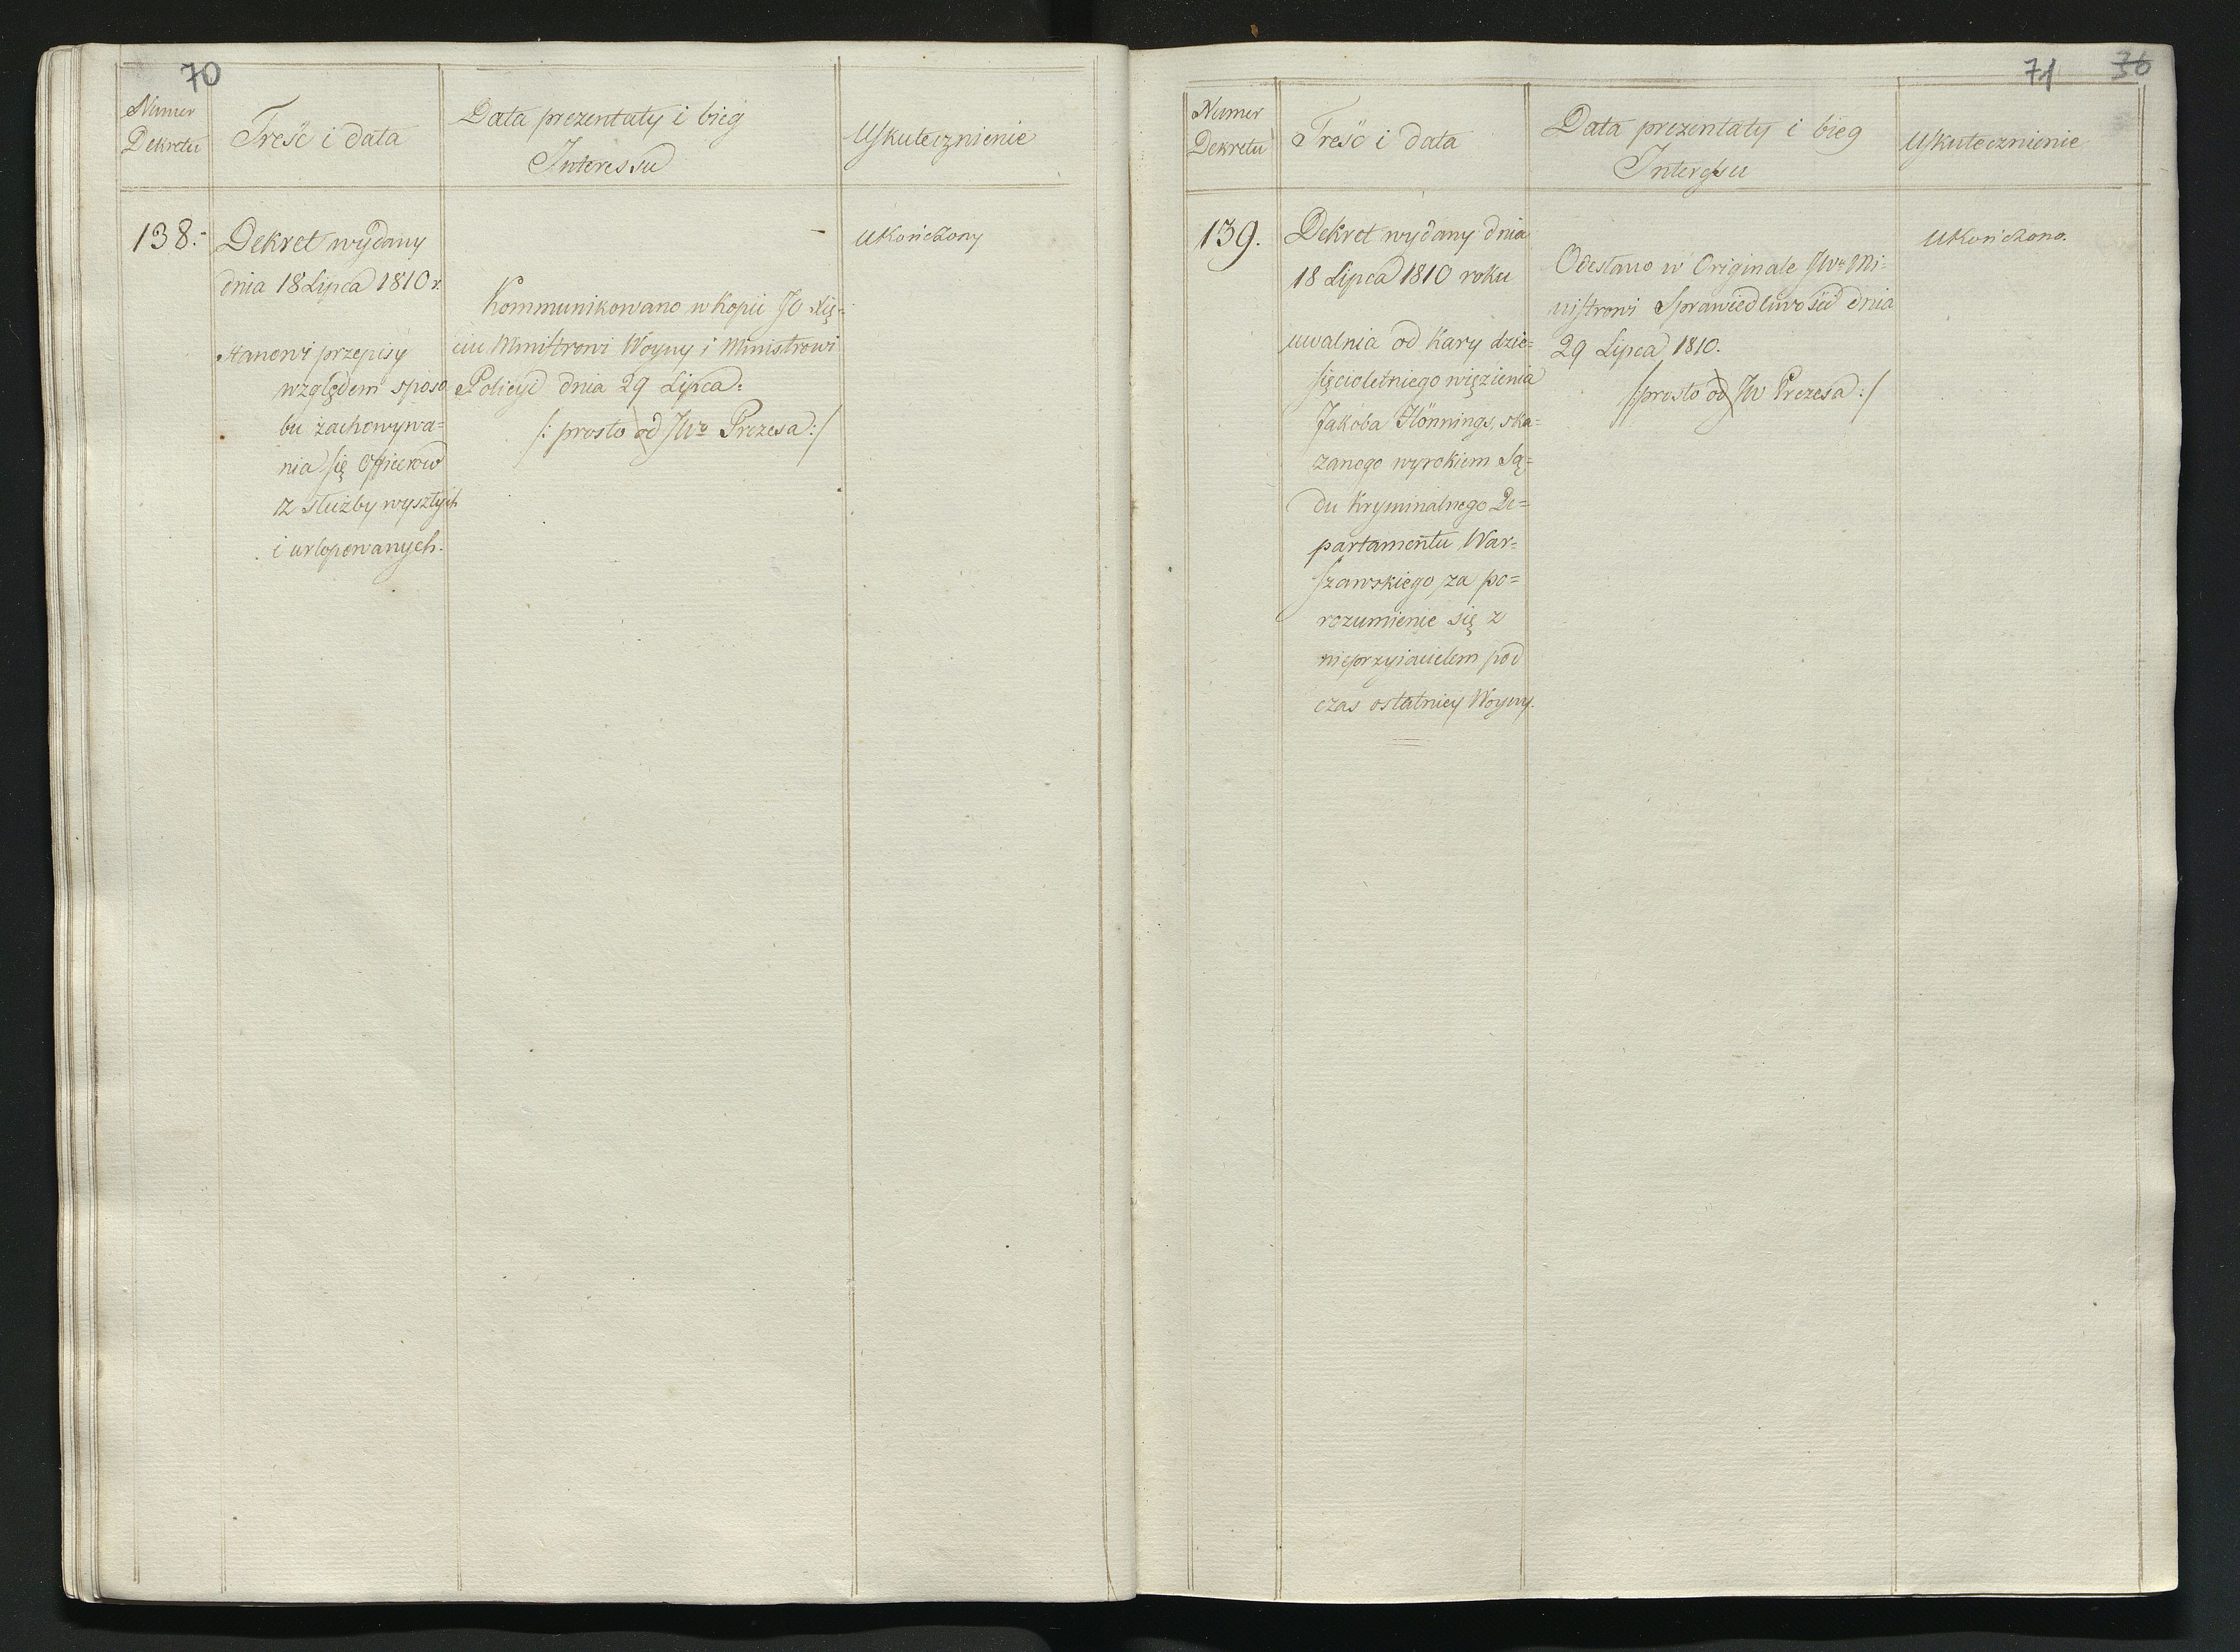 70
Numer
Dekretu
Treść i data
Data prezentaty i bieg
Interessu
Uskutecznienie
138.
Dekret wydany
dnia 18 Lipca 1810 r.
stanowi przepisy
względem sposo
bu zachowywa=
nia się Officerow
z służby wyszłych
i urlopowanych.
Kommunikowano w Kopii JO Xię=
ciu Ministrowi Woyny i Ministrowi
Policyi dnia 29 Lipca.
/: prosto od JWo Prezesa :/
Ukończony
71 36
Numer
Dekretu
Treść i data
Data prezentaty i bieg
Interessu
Uskutecznienie
139.
Dekret wydany dnia
18 Lipca 1810 roku
uwalnia od Kary dzie=
sięcioletniego więzienia
Jakóba Hönnings, ska=
zanego wyrokiem Są=
du Kryminalnego De=
partamentu War=
szawskiego za po=
rozumienie się z
nieprzyiacielem pod
czas ostatniey Woyny.
Odesłano w Originale JWu Mi=
nistrowi Sprawiedliwości dnia
29 Lipca 1810.
/: prosto od JW Prezesa :/
Ukończono.